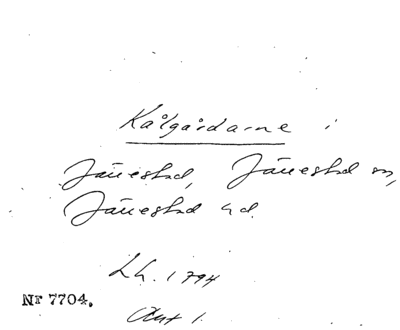 Kålgårdarne i
Järrestad, Järrestad sn,
Järrestad hd.
Lh. 1794
Nr 7704.
Akt 1.